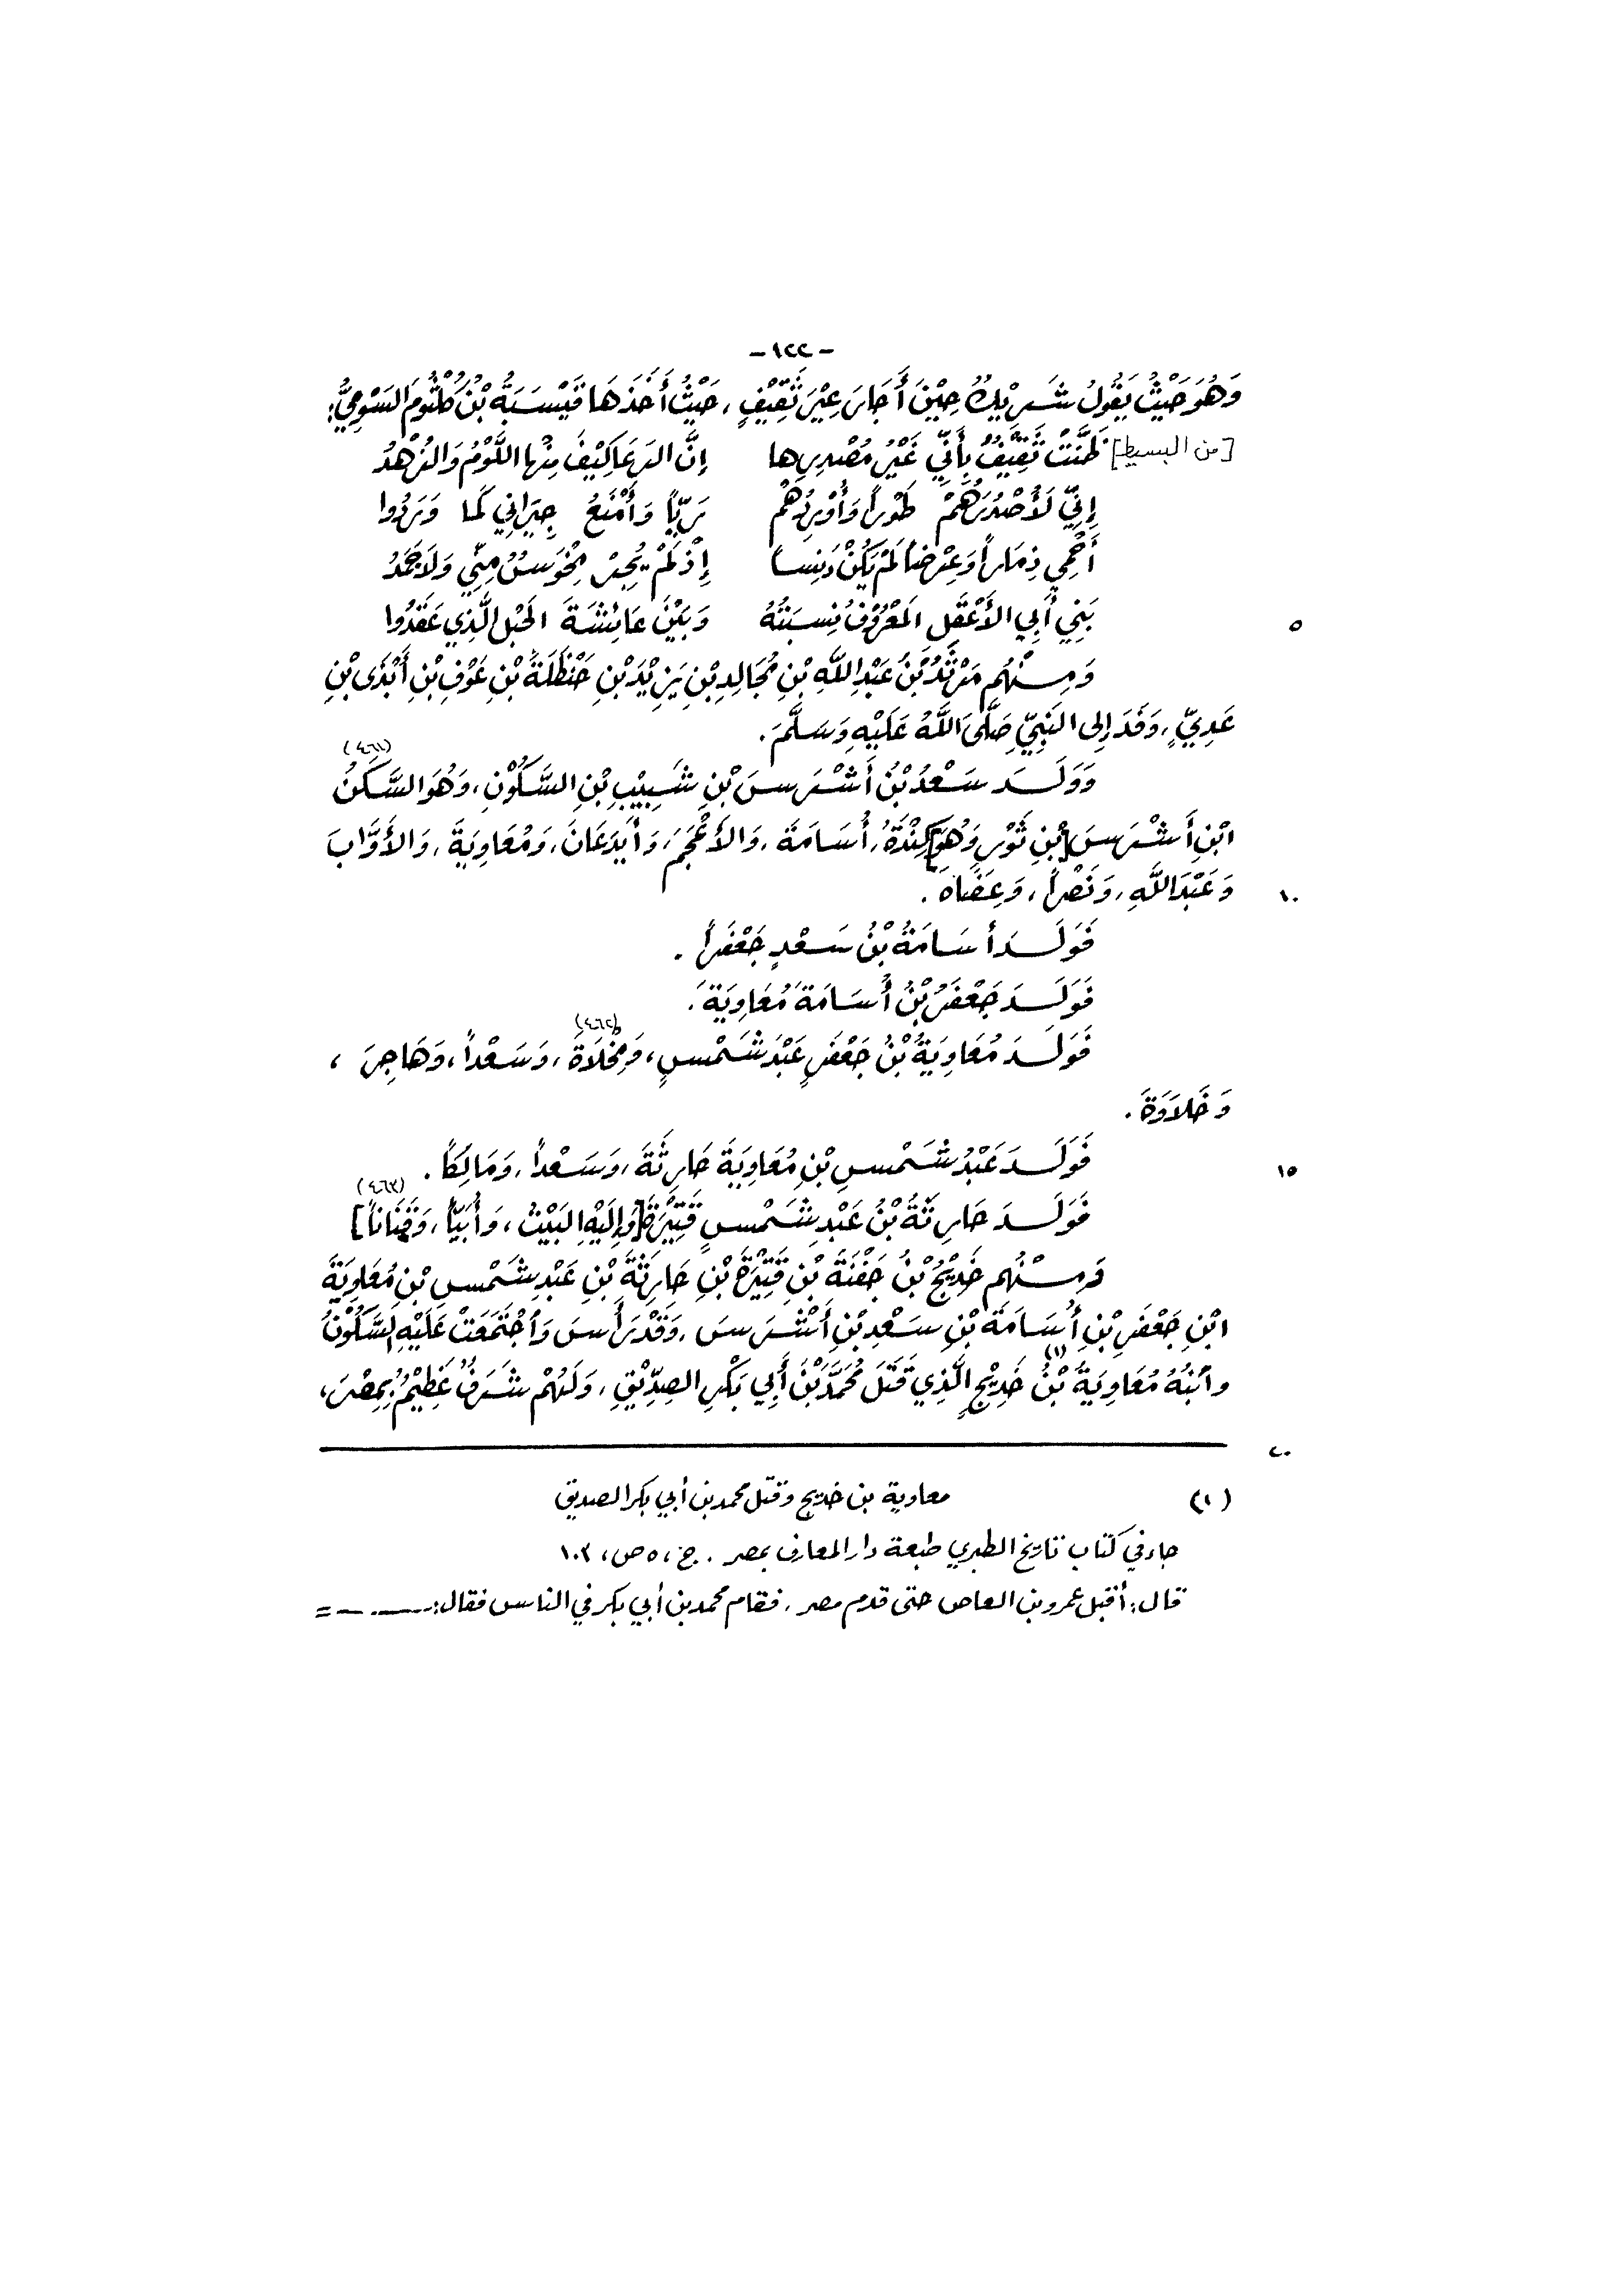 -١٢٢-
وَهُوَ حَيْثُ يَقُولُ شَرِيْكٌ حِيْنَ أَجَارَ عِيْرَ ثَقِيْفٍ، حَيْثُ أَخَذَهَا قَيْسَبَةُ بْنُ كُلْثُومَ السَّوْمِيُّ:
[من البسيط] ظَنَّتْ ثَقِيْفٌ بِأَنِّي غَيْرُ مُصْدِرِها إِنَّ الرِعَا كِيْفَ مِنْها اللَّوْمُ وَالزُهْدُ
إِنِّي لَأُصْدُرُهُمْ طَوْراً وَأُوْرِدُهُمْ رَيّاً وَأَمْنَعُ جِيْرَانِي كَما وَرَدُوا
أَحْمِي ذِمَاراً وَعِرْضاً لَمْ يَكُنْ دَنِساً إِذْ لَمْ يُجِرْ مِخْوَسٌ مِنِّي وَلَا جَمَدُ
٥ بَنِي أَبِي الأَعْقَلِ المَعْرُوفُ نِسْبَتُهُ وَبَيْنَ عَائِشَةَ الحَبْلَ الَّذِي عَقَدُوا
وَمِنْهُم مَرْثَدُ بْنُ عَبْدِ اللَّهِ بْنِ مُجَالِدِ بْنِ يَزِيْدَ بْنِ حَنْظَلَةَ بْنِ عَوْفِ بْنِ أَبْذَى بْنِ
عَدِيٍّ، وَفَدَ إِلى النَبِيِّ صَلَّى اللَّهُ عَلَيْهِ وَسَلَّمَ.
وَوَلَدَ سَعْدُ بْنُ أَشْرَسَ بْنِ شَبِيْبِ بْنِ السَّكُوْنِ، وَهُوَ السَّكَنُ (٤٦١)
ابْنِ أَشْرَسَ [بْنِ ثَوْرٍ وَهُوَ] كِنْدَةُ، أُسَامَةَ، وَالأَعْجَمَ، وَأَبَدَعَانَ، وَمُعَاوِيَةَ، وَالأَوَّابَ
١٠ وَعَبْدَ اللَّهِ، وَنَصْراً، وَعِضَاه.
فَوَلَدَ أُسَامَةُ بْنُ سَعْدٍ جَعْفَراً.
فَوَلَدَ جَعْفَرُ بْنُ أُسَامَةَ مُعَاوِيَةَ.
فَوَلَدَ مُعَاوِيَةُ بْنُ جَعْفَرٍ عَبْدَ شَمْسٍ، وَمِخْلَاةَ (٤٦٢)، وَسَعْداً، وَهَاجِرَ،
وَخَلَاوَةَ.
١٥ فَوَلَدَ عَبْدُ شَمْسِ بْنِ مُعَاوِيَةَ حَارِثَةَ، وَسَعْداً، وَمَالِكاً.
فَوَلَدَ حَارِثَةُ بْنُ عَبْدِ شَمْسٍ قَتِيْرَةَ [وَإِلَيْهِ البَيْتُ، وَأُبَيّاً، وَقِنَاناً] (٤٦٣)
وَمِنْهُم خَدِيْجُ بْنُ جَفْنَةَ بْنِ قَتِيْرَةَ بْنِ حَارِثَةَ بْنِ عَبْدِ شَمْسِ بْنِ مُعَاوِيَةَ
ابْنِ جَعْفَرِ بْنِ أُسَامَةَ بْنِ سَعْدِ بْنِ أَشْرَسَ، وَقَدْ رَأَسَ وَاجْتَمَعَتْ عَلَيْهِ السَّكُوْنُ
وابْنُهُ مُعَاوِيَةُ بْنُ خَدِيْجٍ (١) الَّذِي قَتَلَ مُحَمَّدَ بْنَ أَبِي بَكْرِ الصِدِّيْقِ، وَلَهُمْ شَرَفٌ عَظِيْمٌ بِمِصْرَ،
٢٠
(١) معاوية بن خديج وقتل محمد بن أبي بكر الصديق
جاء في كتاب تاريخ الطبري طبعة دار المعارف بمصر. ج، ٥ ص، ١٠٣
قال: أقبل عمرو بن العاص حتى قدم مصر، فقام محمد بن أبي بكر في الناس فقال: =